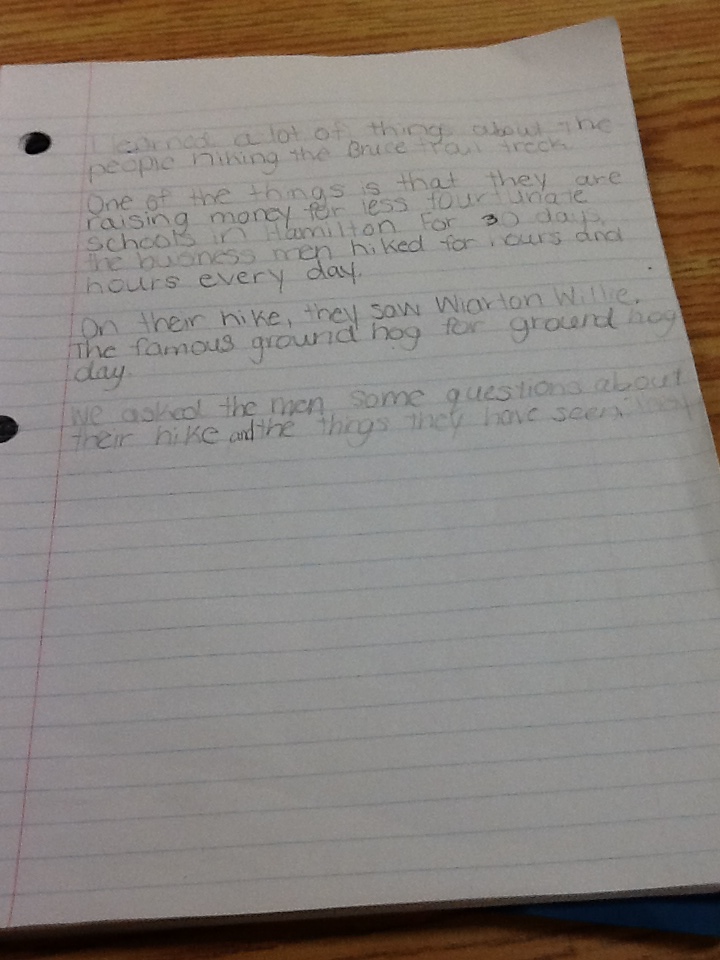 I learned a lot of things about the
people hiking the Bruce trail treck
One of the things is that they are
raising money for less fourtunate
schools in Hamilton For 30 days,
the business men hiked for hours and
hours every day.
On their hike, they saw Wiarton Willie.
The famous ground hog for ground hog
day.
We asked the men some questions about
their hike and the things they have seen.